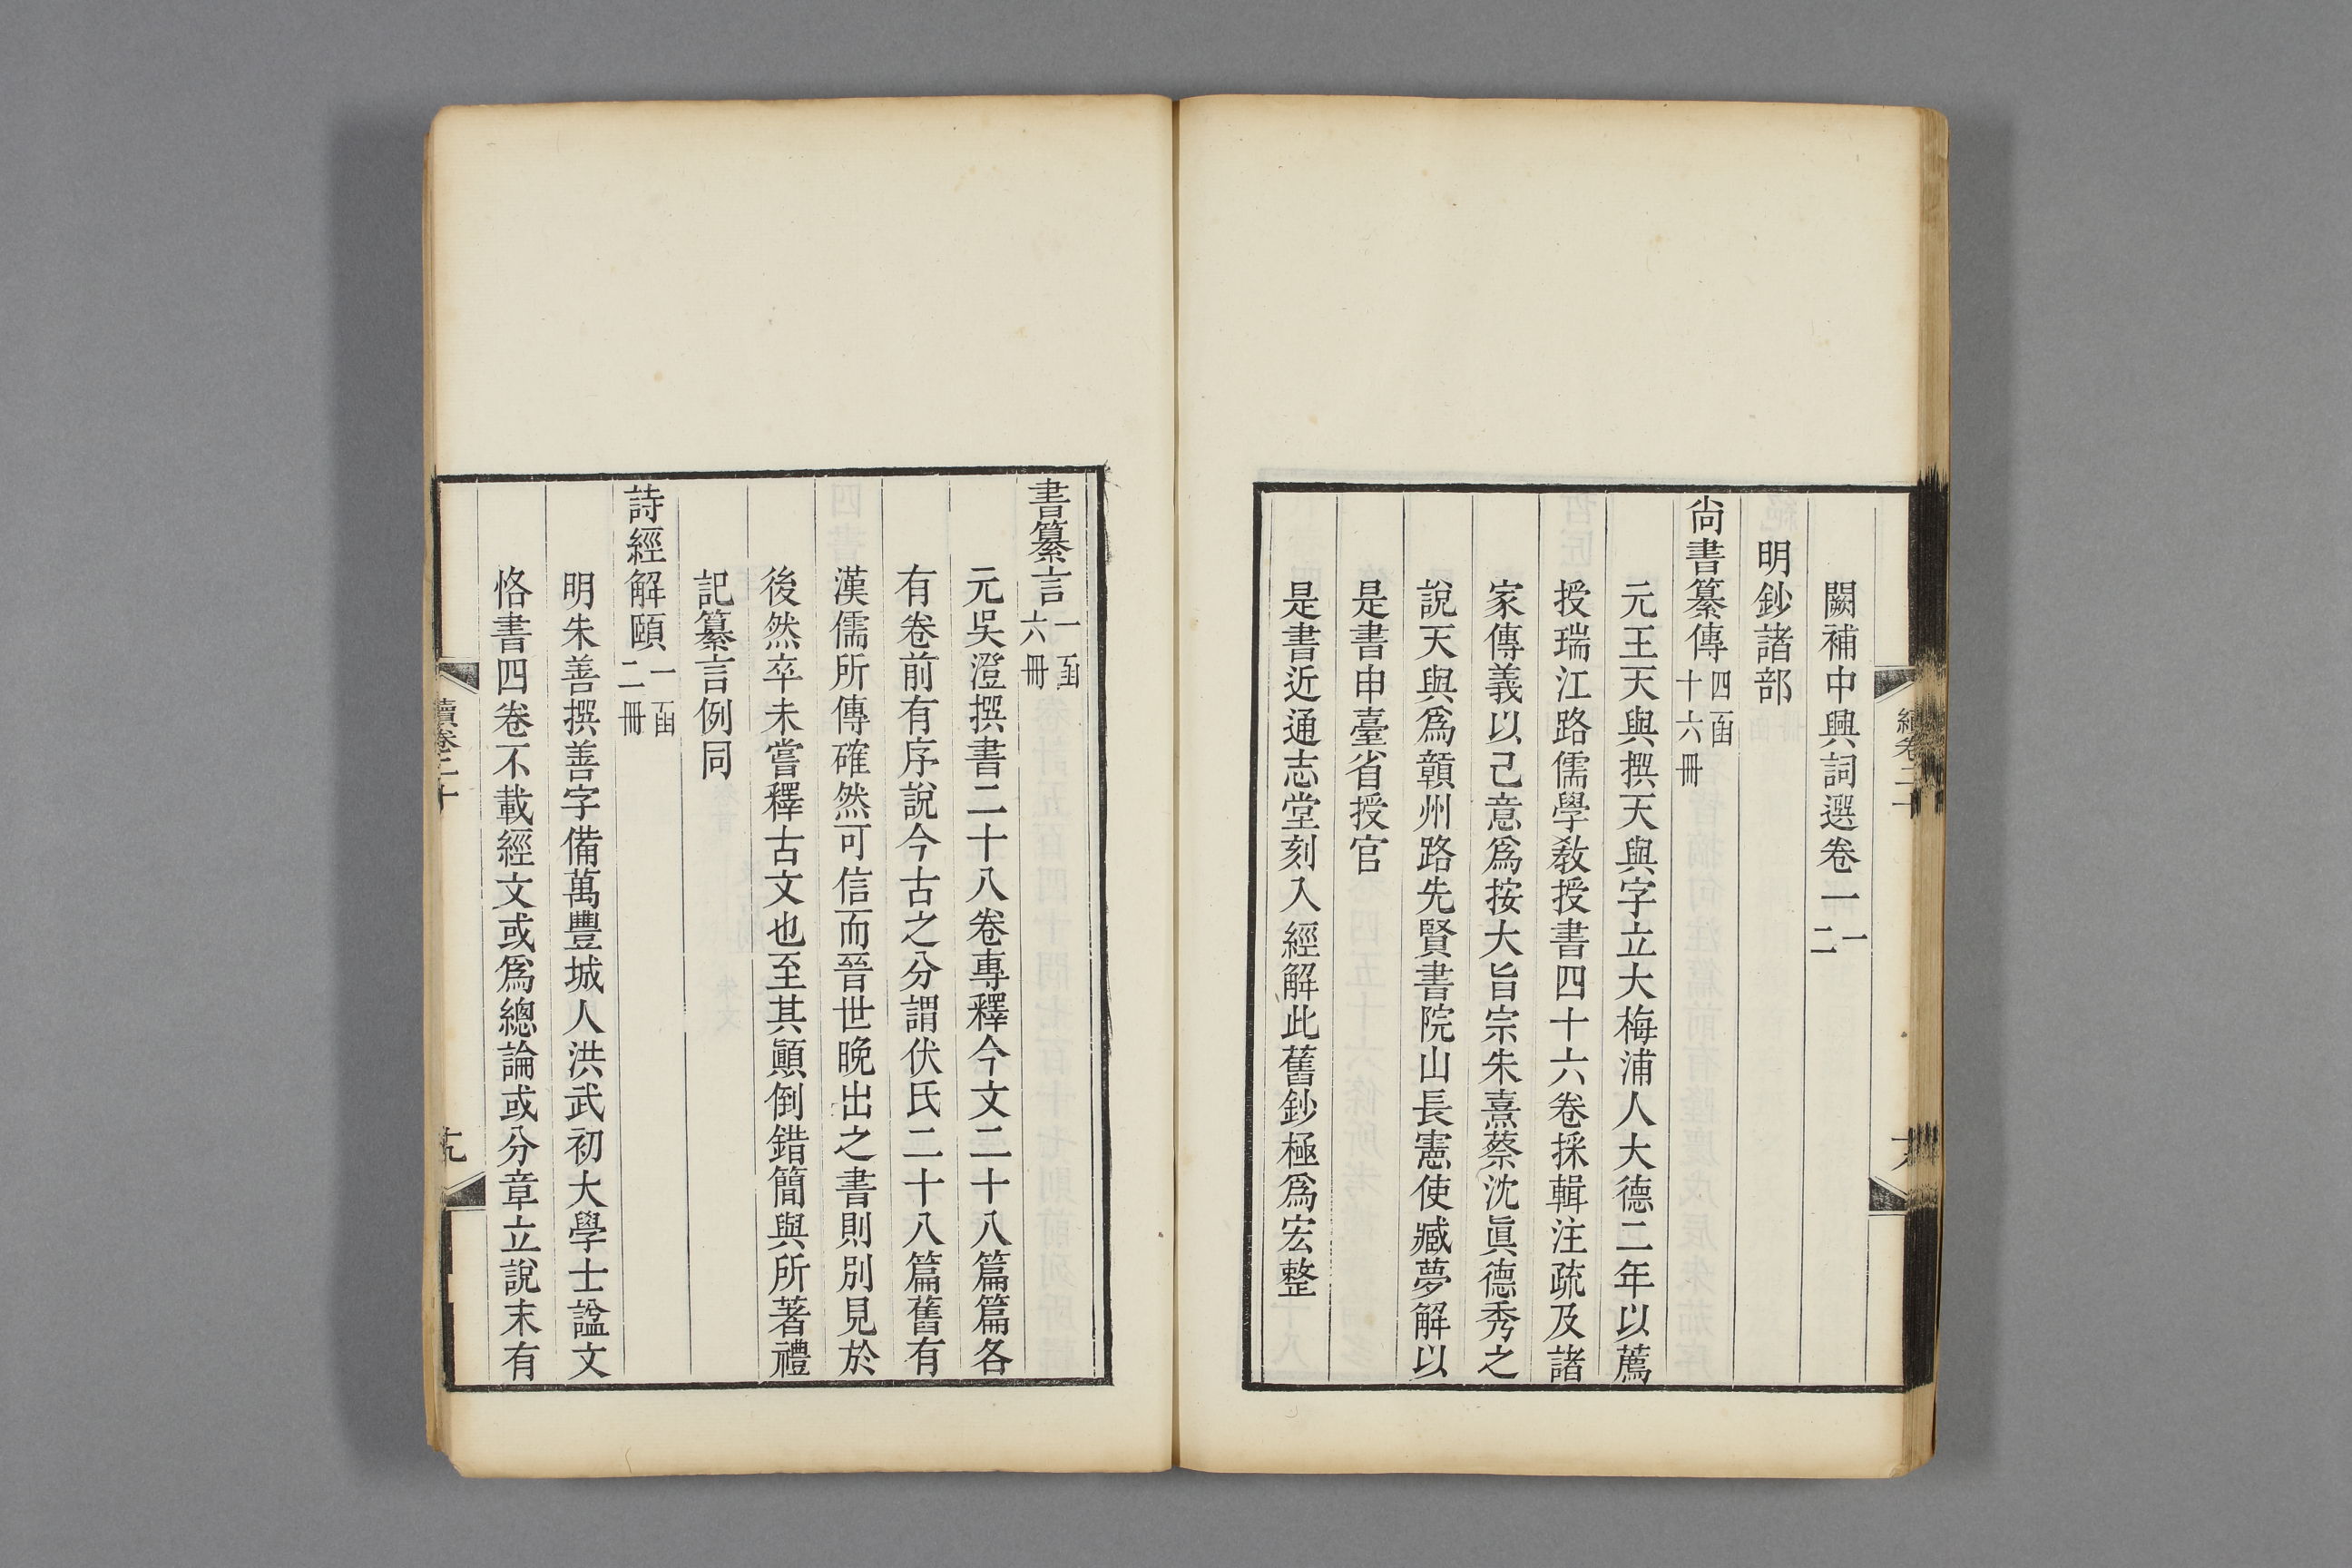 闕補中興詞選卷一一二
明鈔諸部
尙書纂傳四函十六冊
元王天與撰天與字立大梅浦人大德二年以薦
授瑞江路儒學敎授書四十六卷採輯注疏及諸
家傳義以己意爲按大旨宗朱熹蔡沈眞德秀之
說天與爲贛州路先賢書院山長憲使臧夢解以
是書申臺省授官
是書近通志堂刻入經解此舊鈔極爲宏整
書纂言一函六冊
元吳澄撰書二十八卷專釋今文二十八篇篇各
有卷前有序說今古之分謂伏氏二十八篇舊有
漢儒所傳確然可信而晉世晚出之書則別見於
後然卒未嘗釋古文也至其顚倒錯簡與所著禮
記纂言例同
詩經解頤一函二冊
明朱善撰善字備萬豐城人洪武初大學士諡文
恪書四卷不載經文或爲總論或分章立說末有
續卷二十
十九